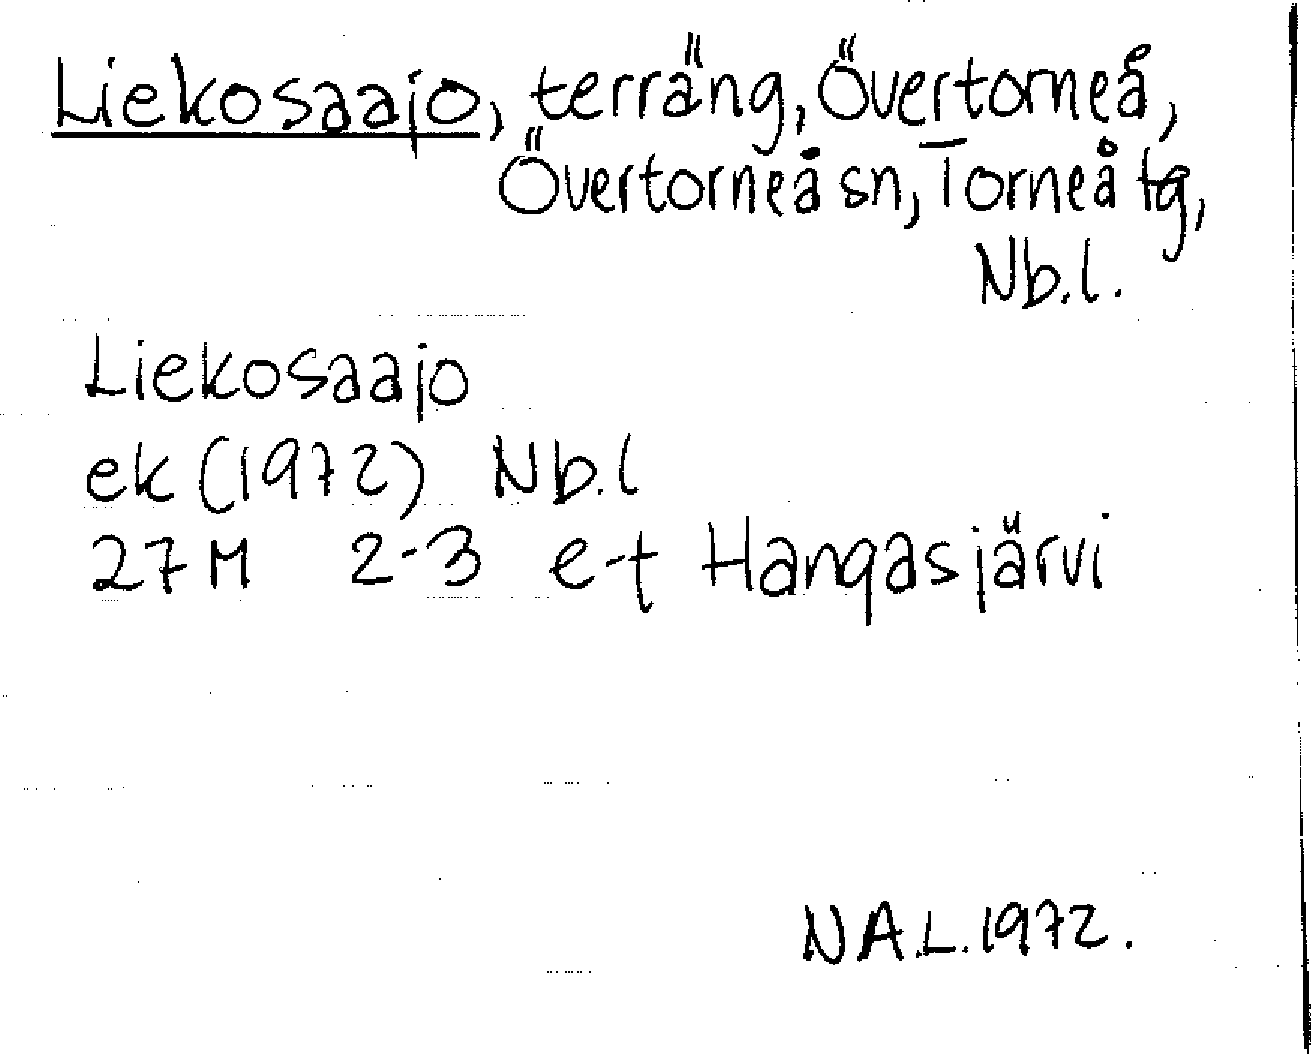 Liekosaajo, terräng, Övertorneå,
Övertorneå sn, Torneå tg,
Nb.l.
Liekosaajo
ek (1972) Nb.l
27M 2-3 e-t Hangasjärvi
NA.L. 1972.